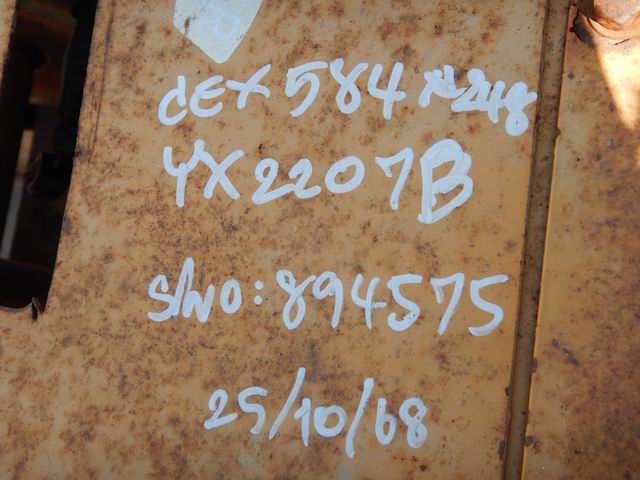 CEX 584 N248
YX2207B
S/NO: 894575
25/10/68